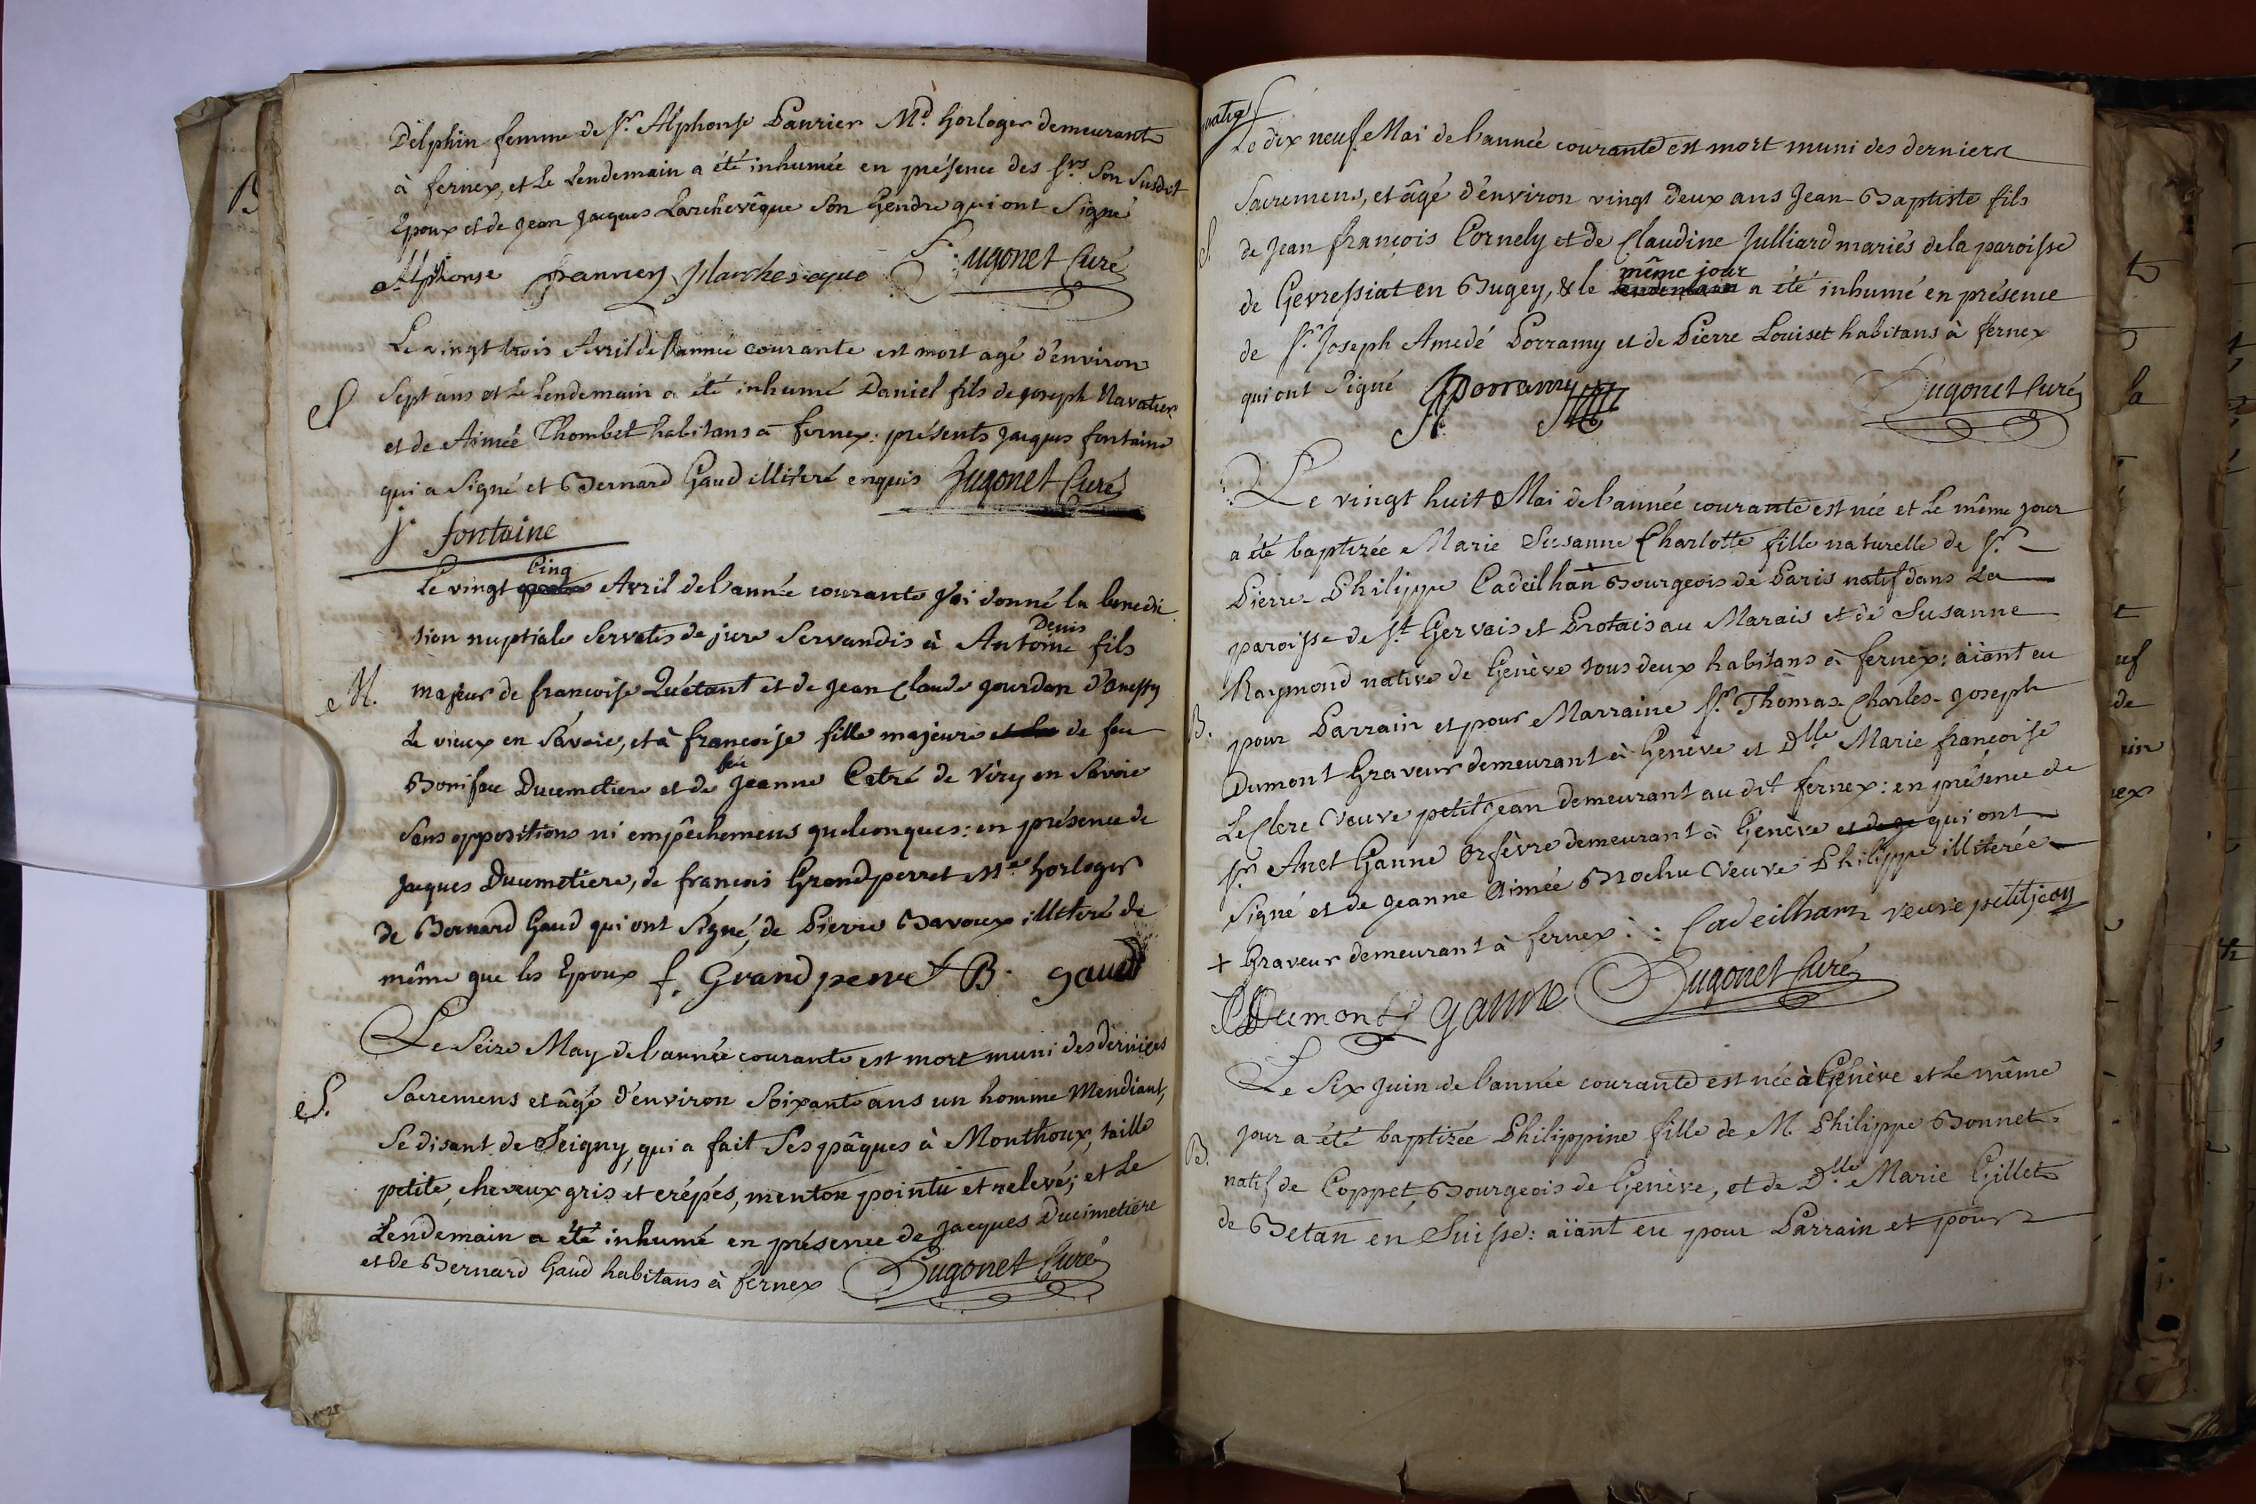 Delphin femme de Sr. Alphonse Panrier Md. horloger demeurante
à fernex, et le Lendemain a été inhumée en présence des Srs. Son Susdit
Epoux et de Jean Jacques Larchevêque Son Gendre qui ont Signé
Alphonse panrier Jlarcheveque Hugonet Curé
Le vingt trois Avril de l'année courante est mort agé d'environ
S Sept ans et le Lendemain a été inhumé Daniel fils de Joseph Navatier
et de Aimée Thombet habitans à fernex: présents Jacques fontaine
qui a Signé et Bernard Gaud illiteré enquis Hugonet Curé
J. fontaine
Cinq
Le vingt Avril de l'année courante J'ai donné la benedic
Denis
tion nuptiale Servatis de jure Servandis à Antoine fils
M. majeur de francoise Quétant et de Jean Claude Jourdan d'Anessy
le vieux en Savoie, et à francoise fille majeure et de feu
feu
Boniface Ducimetiere et de Jeanne Catré de Viry en Savoie
Sans oppositions ni empêchemens quelconques: en présence de
Jacques Ducimetiere, de francois Grandperret Md. horloger
de Bernard Gaud qui ont Signé, de Pierre Bavoux illiteré de
même que les Epoux f. Grandperret B. gaud
Le Seize May de l'année courante est mort muni des derniers
S. Sacremens et âgé d'environ Soixante ans un homme Mendiant,
Se disant de Seigny, qui a fait Ses pâques à Monthoux, taille
petite, cheveux gris et crépés, menton pointu et relevé; et Le
Lendemain a été inhumé en présence de Jacques Ducimetiere
et de Bernard Gaud habitans à fernex Hugonet Curé
Le dix neuf Mai de l'année courante est mort muni des derniers
Sacremens, et âgé d'environ vingt Deux ans Jean-Baptiste fils
S. de Jean françois Cornely et de Claudine Julliard mariés de la paroisse
même jour
de Gevressiat en Bugey, & le lendemain a été inhumé en présence
de Sr. Joseph Amedé Porramy et de Pierre Louiset habitans à fernex
qui ont Signé JPorramy Hugonet Curé
Le vingt huit Mai de l'année courante est née et Le même jour
a été baptizée Marie Susanne Charlotte fille naturelle de Sr.
Pierre-Philippe Cadeilhan Bourgeois de Paris natif dans La
paroisse de St. Gervais et Protais au Marais et de Susanne
Raymond native de Genève tous deux habitans à fernex; aiant eu
B. pour Parrain et pour Marraine Sr. Thomas-Charles-Joseph
Dumont Graveur demeurant à Genève et Dlle. Marie françoise
LeClerc Veuve petitjean demeurant au dit fernex: en présence de
Sr. Anet Ganne Orfèvre demeurant à Genève et de qui ont
Signé et de Jeanne Aimée Brochu Veuve Philippe illiterée
+ Graveur demeurant à fernex: Cadeilhan veuve petitjean
Dumont ganne Hugonet Curé
Le Six Juin de l'année courante est née à Genève et Le même
B. Jour a été baptizée Philippine fille de M. Philippe Bonnet
natif de Coppet, Bourgeois de Genève, et de Dlle. Marie Gillet
de Betan en Suisse: aïant eu pour Parrain et pour